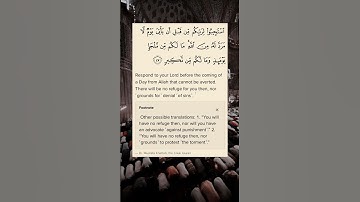 ٱسْتَجِيبُوا۟ لِرَبِّكُم مِّن قَبْلِ أَن يَأْتِىَ يَوْمٌۭ لَّا
مَرَدَّ لَهُۥ مِنَ ٱللَّهِ ۚ مَا لَكُم مِّن مَّلْجَإٍۢ
يَوْمَئِذٍۢ وَمَا لَكُم مِّن نَّكِيرٍۢ ٤٧
Respond to your Lord before the coming of
a Day from Allah that cannot be averted.
There will be no refuge for you then, nor
˹grounds for˺ denial ˹of sins˺.
Footnote
Other possible translations: 1. “You will
have no refuge then, nor will you have
an advocate ˹against punishment˺.” 2.
“You will have no refuge then, nor
˹grounds˺ to protest ˹the torment˺.”
— Dr. Mustafa Khattab, the Clear Quran